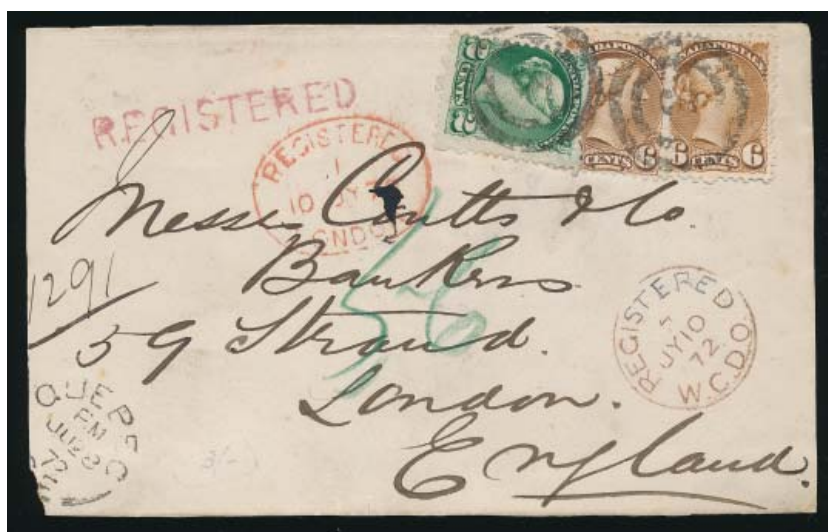 REGISTERED
REGISTERED
1
10 JY 7
LONDON
3 CENTS 3
CANADA POSTAGE
CENTS 6
6 CENTS 6
Messrs Coutts & Co.
Bankers
59 Strand.
London.
England.
1291
56
REGISTERED
JY 10
72
W.C.D.O.
QUEBEC
PM
JU 28
72
3/-